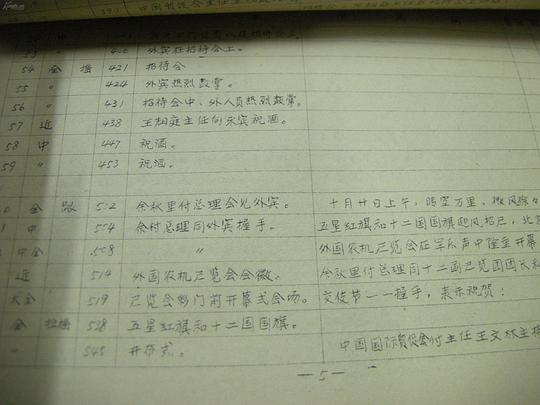 390 中国贸促会主任王
53 中 406 外宾在招待会上。
54 全 摇 421 招待会
55 〃 424 外宾热烈鼓掌。
56 〃 431 招待会中、外人员热烈鼓掌。
57 近 438 王耀庭主任向来宾祝酒。
58 中 447 祝酒。
59 〃 453 祝酒。
全 跟 502 余秋里付总理会见外宾。 十月廿日上午，晴空万里，微风徐
中 504 余付总理同外宾握手。 五星红旗和十二国国旗迎风招己，北京
中全 508 〃 外国农机己览会在军乐声中隆重开幕
近 514 外国农机己览会会徽。 余秋里付总理同十二国己览团团长和
大全 519 己览会部门前开幕式会场。 交使节一一握手，表示祝贺：
全 招摇 528 五星红旗和十二国国旗。
〃 545 开幕式。 中国国际贸促会付主任王文林主持
—5—